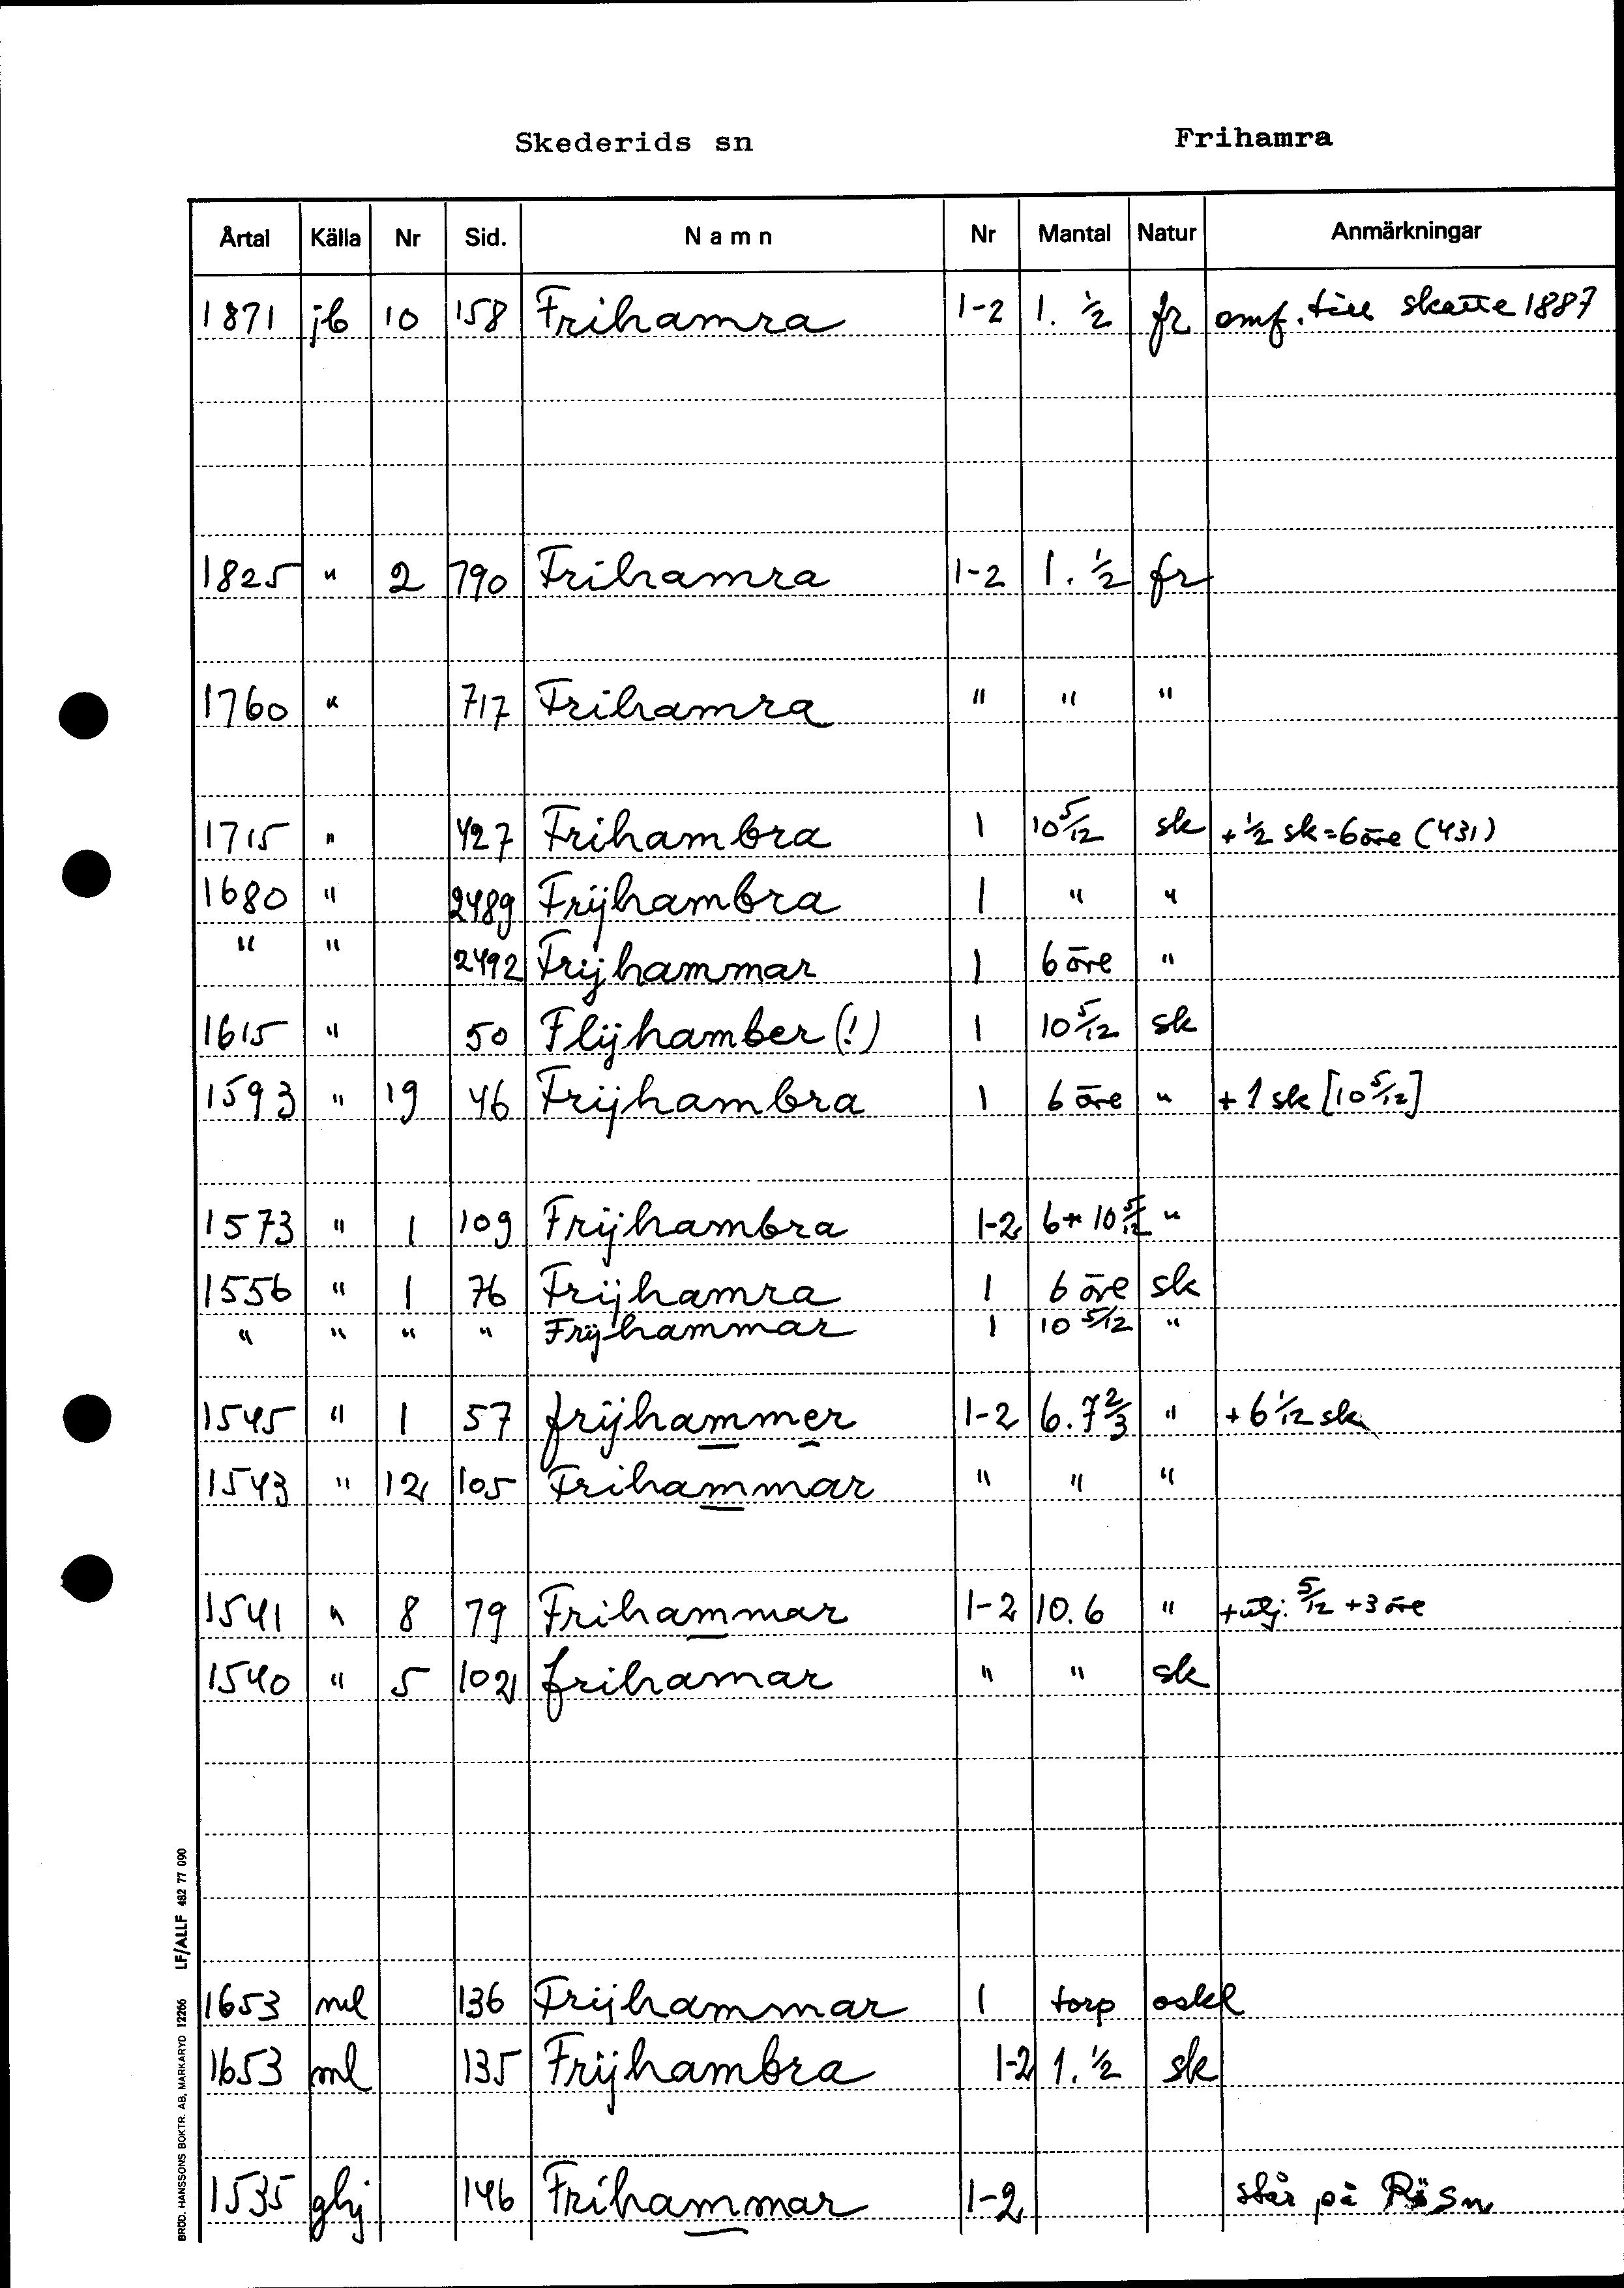 Skederids sn Frihamra
Årtal Källa Nr Sid. Namn Nr Mantal Natur Anmärkningar
1871 jb 10 158 Frihamra 1-2 1. ½ fr omf. till skatte 1887
1825 " 2 790 Frihamra 1-2 1. ½ fr
1760 " 717 Frihamra " " "
1715 " 427 Frihambra 1 10 5/12 sk + ½ sk = 6 öre (431)
1680 " 2489 Frijhambra 1 " "
" " 2492 Frijhammar 1 6 öre "
1615 " 50 Flijhamber (!) 1 10 5/12 sk
1593 " 19 46 Frijhambra 1 6 öre " + 1 sk [10 5/12]
1573 " 1 109 Frijhambra 1-2 6 + 10 5/12 "
1556 " 1 76 Frijhamra 1 6 öre sk
" " " " Frijhammar 1 10 5/12 "
1545 " 1 57 frijhammer 1-2 6. 7 2/3 " + 6 1/12 sk
1543 " 12 105 Frihammar " " "
1541 " 8 79 Frihammar 1-2 10. 6 " + utj. 5/12 + 3 öre
1540 " 5 102 frihamar " " sk
1653 ml 136 Frijhammar 1 torp oskl
1653 ml 135 Frijhambra 1-2 1. ½ sk
1535 ghj 146 Frihammar 1-2 står på Rö Sn
BRÖD. HANSSONS BOKTR. AB, MARKARYD 12266 LF/ALLF 482 77 090